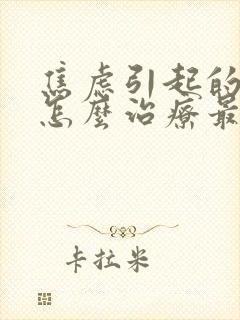 焦虑引起的
怎麼治療最
卡拉米